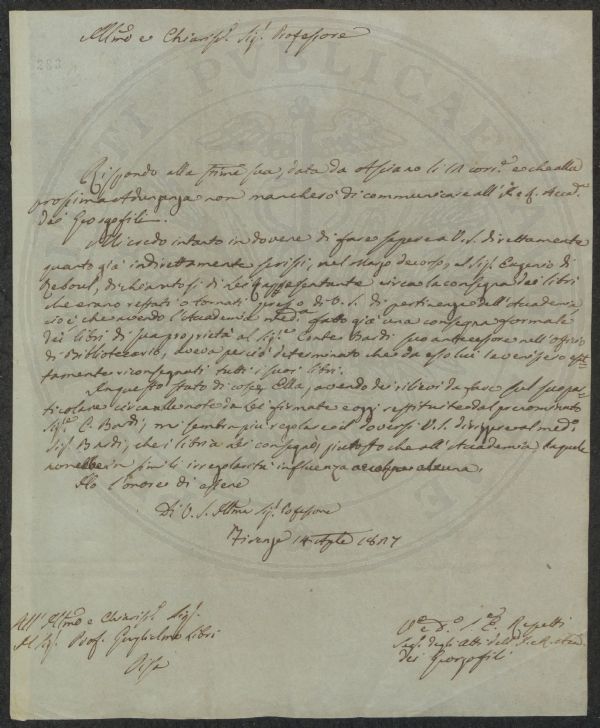 Illmo e Chiariss. Sig. Professore
283
Rispondo alla sua, data da
prossima Adunanza non mancherò di communicare all' I. e R. Accad.
dei Georgofili.
Mi credo intanto in dovere di fare sapere a V.S. direttamente
quanto già indirettamente scrissi, nel Mag. decorso, al Sig. Eugenio di
Reboul, di Lei Rappresentante circa la consegna dei libri
che erano restati o tornati presso di V.S. di pertinenza dell'Accademia
cioè che avendo l'Accademia med. fatto già una consegna formale
dei libri di sua proprietà al Sig. Conte Bardi suo antecessore nell'Ofizio
di Bibliotecario, aveva perciò determinato che da esso lui le venissero
riconsegnati tutti i suoi libri.
In questo stato di cose, Ella, avendo dei rilievi da fare sul
circa alle note da Lei firmate e oggi restituite dal prenominato
Sig. C. Bardi, mi sembra più regolare il doversi V.S. dirigere al med.
Sig. Bardi, che i libri a Lei consegnò, piuttosto che all'Accademia la quale
non ebbe in simili irregolarità influenza alcuna.
Ho l'onore di essere
Di V.S. Illma Sig. Professore
Firenze 1827
All' Illmo e Chiariss. Sig.
Il Sig. Prof. Guglielmo Libri
Pisa
E. Repetti
Seg. degli Atti dell'
dei Georgofili